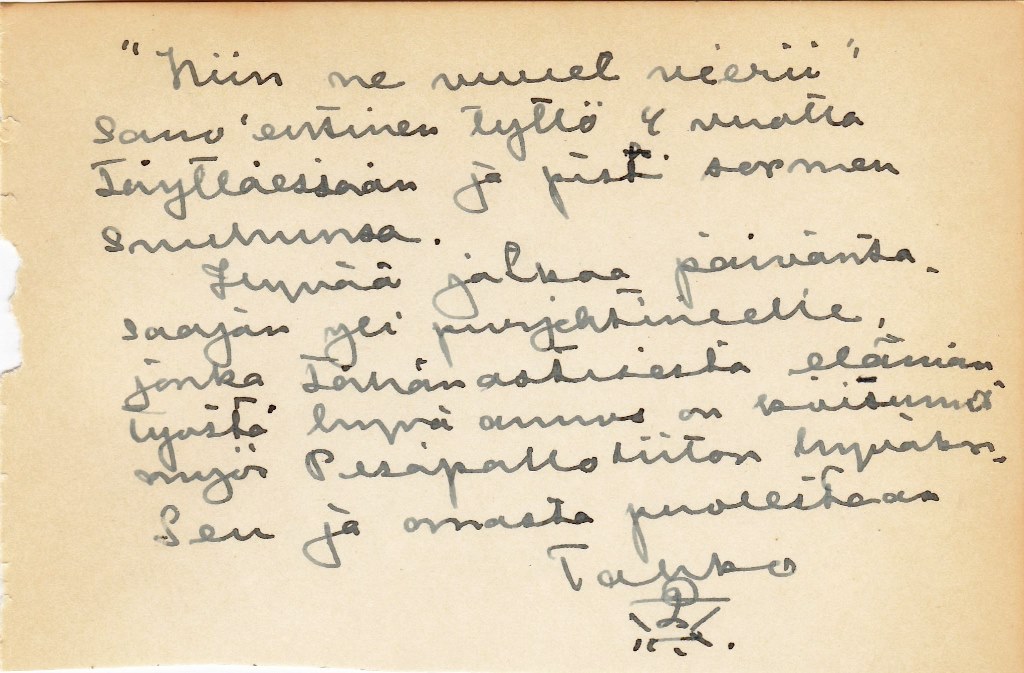 "Niin ne vuuet vierii"
sano' entinen tyttö 4 vuotta
täyttäessään ja pisti sormen
suuhunsa.
Hyvää jatkoa päivänsa-
saajan yli purjehtineelle,
jonka tähänastisesta elämän
työstä hyvä annos on koitunut
myös Pesäpalloliiton hyväksi.
Sen ja omasta puolestaan
Tahko